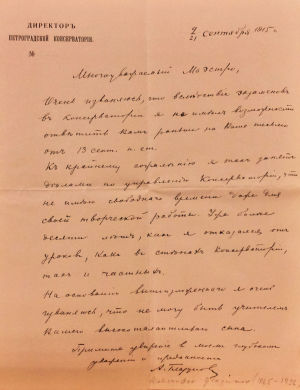 ДИРЕКТОРЪ
ПЕТРОГРАДСКОЙ КОНСЕРВАТОРІИ.
№
сентября 1915 г.
Многоуважаемый Маэстро,
Очень извиняюсь, что вслѣдствіе экзаменовъ
въ Консерваторіи я не имѣлъ возможности
отвѣтить Вамъ раньше на Ваше письмо
отъ 13 сент. н. ст.
Къ крайнему сожалѣнію я такъ занятъ
дѣлами по управленію Консерваторіи, что
не имѣю свободнаго времени даже для
своей творческой работы. Уже болѣе
десяти лѣтъ, какъ я отказался отъ
уроковъ, какъ въ стѣнахъ Консерваторіи,
такъ и частныхъ.
На основаніи вышеизложеннаго я очень
извиняюсь, что не могу быть учителемъ
Вашего высокоталантливаго сына.
Примите увѣреніе въ моемъ глубокомъ
уваженіи и преданности
А. Глазуновъ